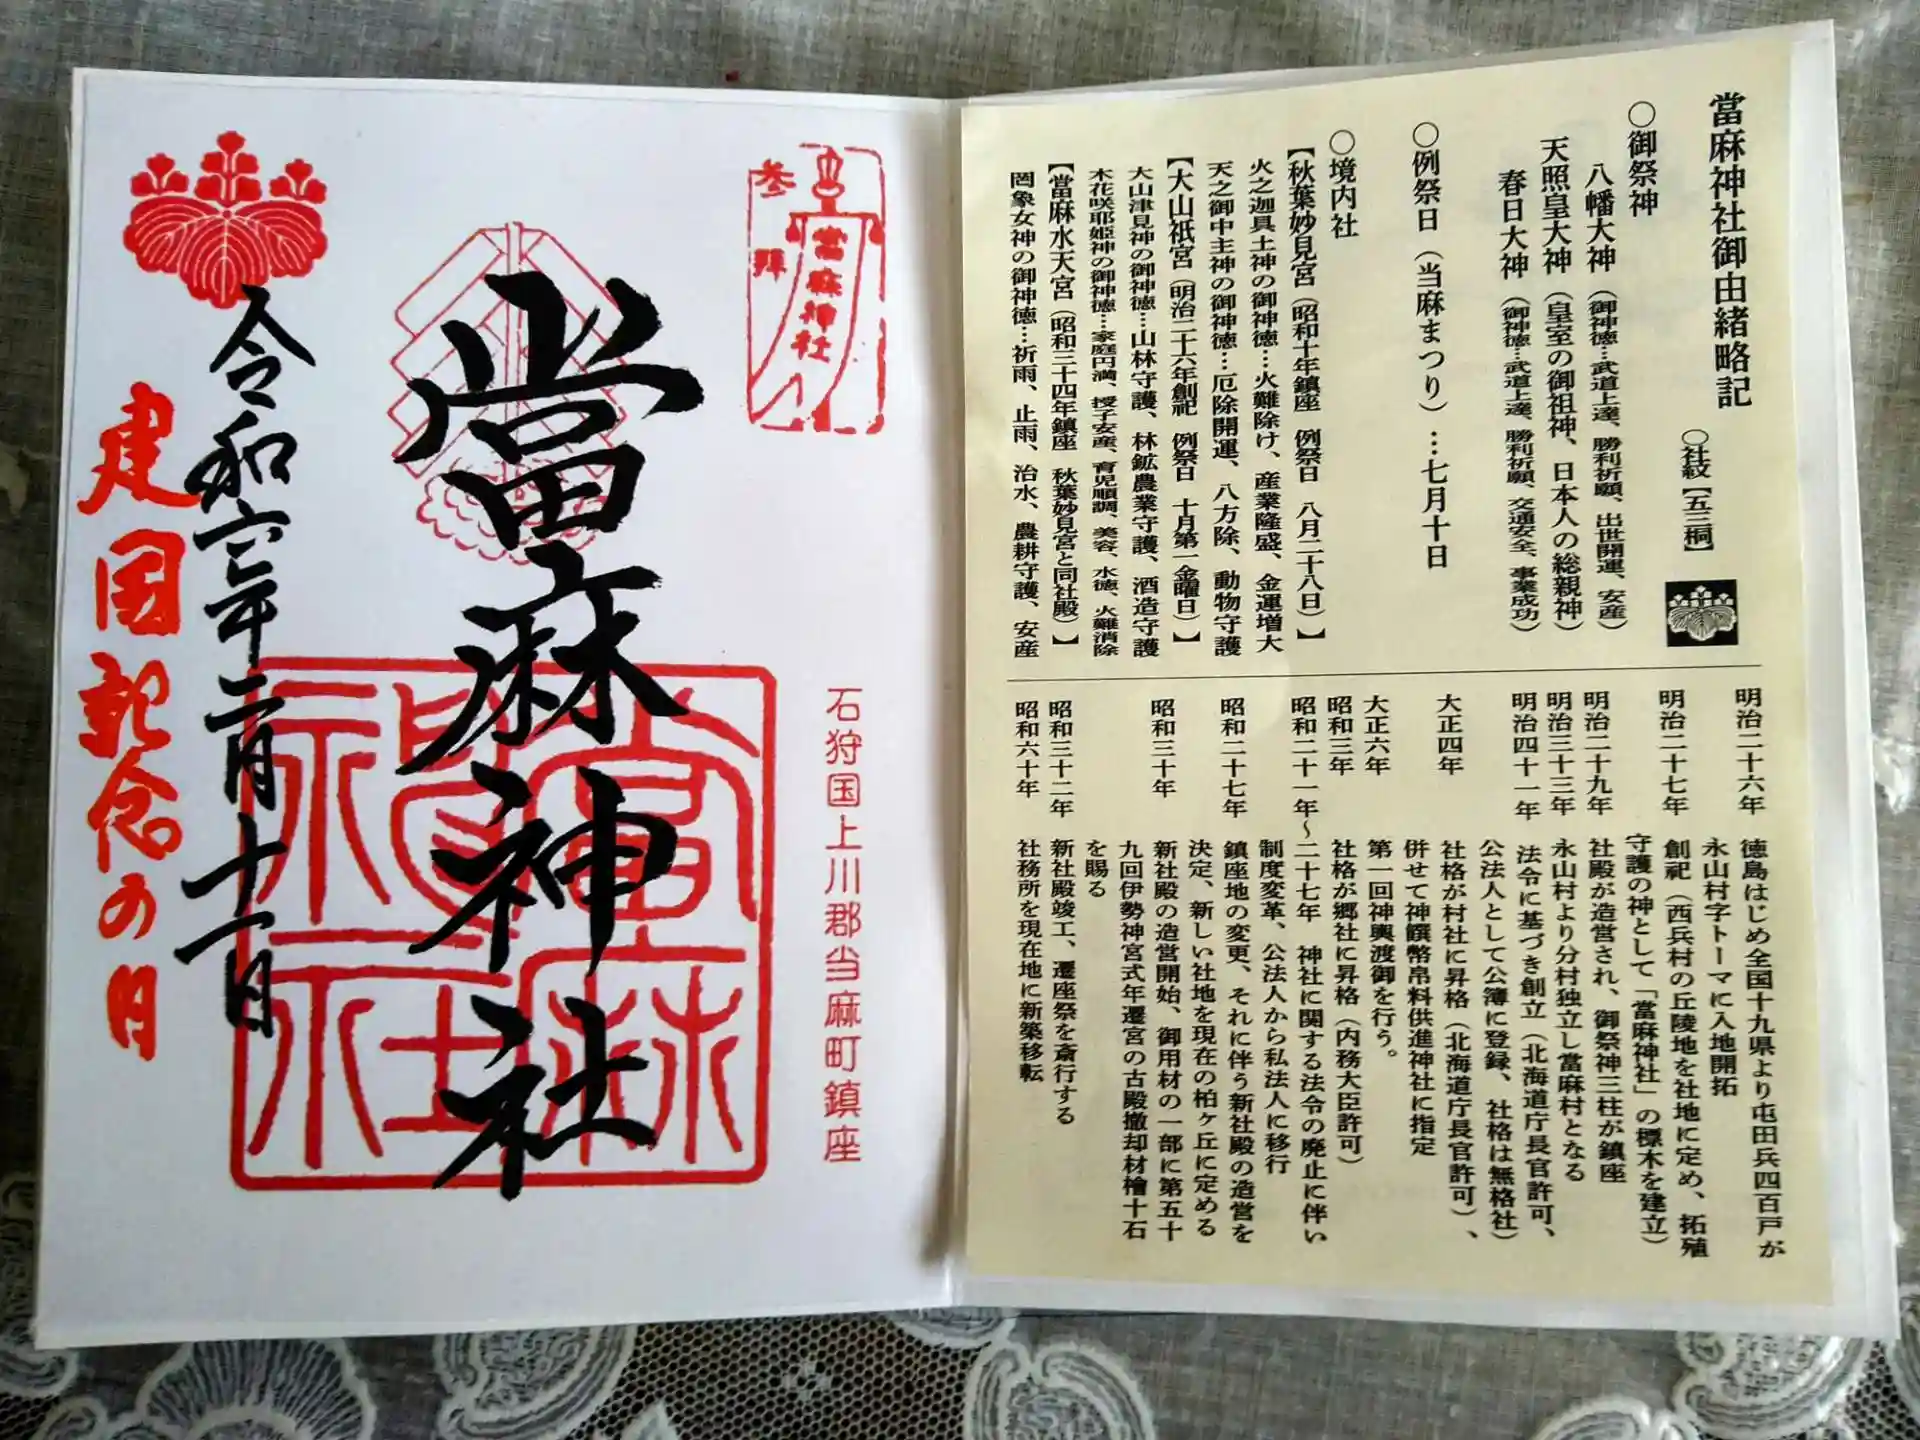 當麻神社御由緒略記
〇社紋【五三桐】
〇御祭神
八幡大神（御神徳…武道上達、勝利祈願、出世開運、安産）
天照皇大神（皇室の御祖神、日本人の総親神）
春日大神（御神徳…武道上達、勝利祈願、交通安全、事業成功）
〇例祭日（当麻まつり）…七月十日
〇境内社
【秋葉妙見宮（昭和十年鎮座　例祭日　八月二十八日）】
火之迦具土神の御神徳…火難除け、産業隆盛、金運増大
天之御中主神の御神徳…厄除開運、八方除、動物守護
【大山祇宮（明治二十六年創祀　例祭日　十月第一金曜日）】
大山津見神の御神徳…山林守護、林鉱農業守護、酒造守護
木花咲耶姫神の御神徳…家庭円満、授子安産、育児順調、美容、水徳、火難消除
【當麻水天宮（昭和三十四年鎮座　秋葉妙見宮と同社殿）】
罔象女神の御神徳…祈雨、止雨、治水、農耕守護、安産
明治二十六年　徳島はじめ全国十九県より屯田兵四百戸が
永山村字トーマに入地開拓
明治二十七年　創祀（西兵村の丘陵地を社地に定め、拓殖
守護の神として「當麻神社」の標木を建立）
明治二十九年　社殿が造営され、御祭神三柱が鎮座
明治三十三年　永山村より分村独立し當麻村となる
明治四十一年　法令に基づき創立（北海道庁長官許可、
公法人として公簿に登録、社格は無格社）
大正四年　社格が村社に昇格（北海道庁長官許可）、
併せて神饌幣帛料供進神社に指定
大正六年　第一回神輿渡御を行う。
昭和三年　社格が郷社に昇格（内務大臣許可）
昭和二十一年～二十七年　神社に関する法令の廃止に伴い
制度変革、公法人から私法人に移行
昭和二十七年　鎮座地の変更、それに伴う新社殿の造営を
決定、新しい社地を現在の柏ヶ丘に定める
昭和三十年　新社殿の造営開始、御用材の一部に第五十
九回伊勢神宮式年遷宮の古殿撤却材檜十石
を賜る
昭和三十二年　新社殿竣工、遷座祭を斎行する
昭和六十年　社務所を現在地に新築移転
參拜
當麻神社
石狩国上川郡当麻町鎮座
當麻神社
當麻神社
令和六年二月十一日
建国記念の日